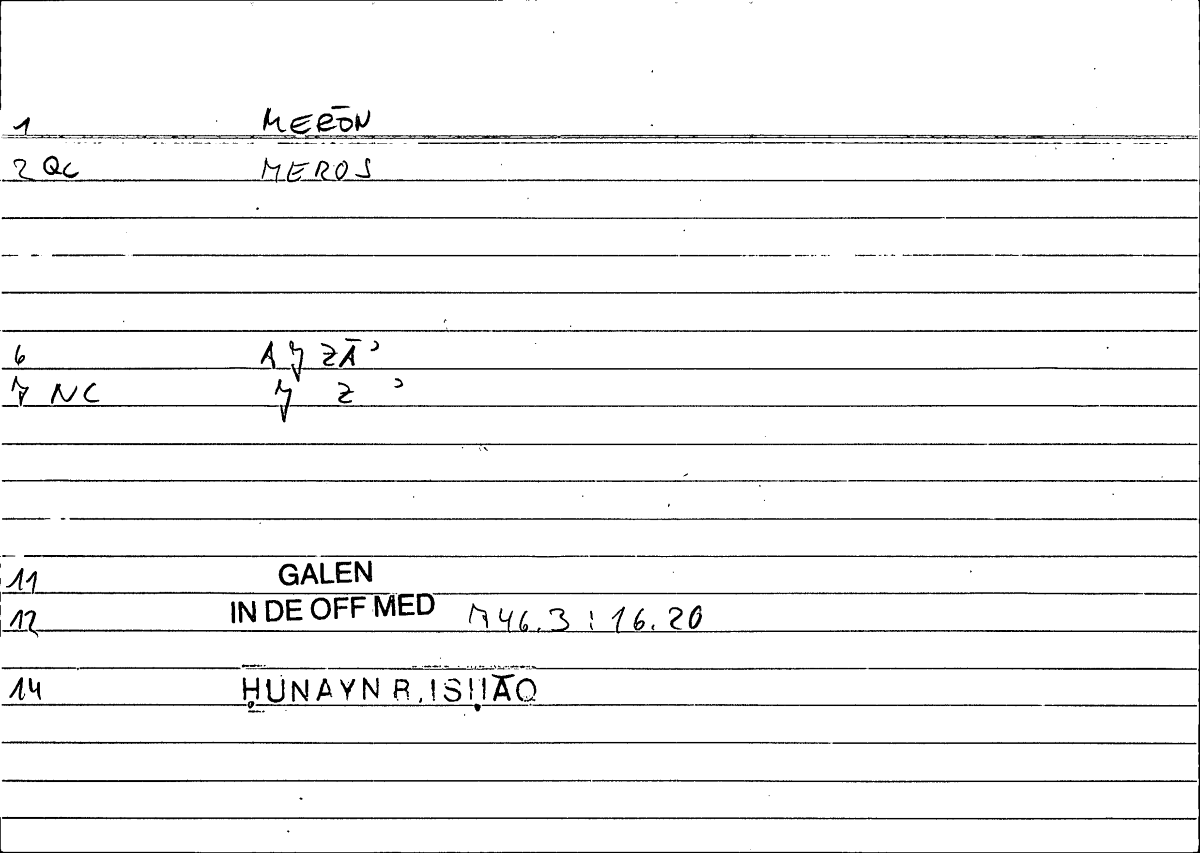 1 MERŌN
2 QC MEROS
6 AJZĀʾ
7 NC J Z ʾ
11 GALEN
12 IN DE OFF MED 746.3 : 16.20
14 ḤUNAYN B. ISḤĀQ